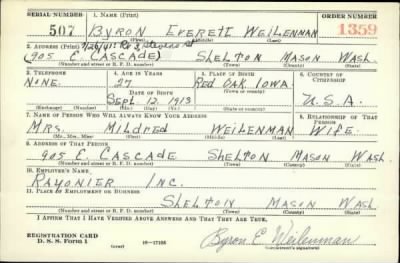 SERIAL NUMBER 1. NAME (Print) ORDER NUMBER
507 BYRON EVERETT WEILENMAN 1359
(First) (Middle) (Last)
2. ADDRESS (Print)
(905 E. CASCADE) SHELTON MASON WASH.
(Number and street or R. F. D. number) (Town) (County) (State)
3. TELEPHONE 4. AGE IN YEARS 5. PLACE OF BIRTH 6. COUNTRY OF CITIZENSHIP
NONE. 27 RED OAK IOWA.
DATE OF BIRTH
SEPT. 12. 1913 U.S.A.
(Exchange) (Number) (Mo.) (Day) (Yr.) (State or country)
7. NAME OF PERSON WHO WILL ALWAYS KNOW YOUR ADDRESS 8. RELATIONSHIP OF THAT PERSON
MRS. MILDRED WEILENMAN WIFE.
(Mr., Mrs., Miss) (First) (Middle) (Last)
9. ADDRESS OF THAT PERSON
905 E. CASCADE SHELTON MASON WASH.
(Number and street or R. F. D. number) (Town) (County) (State)
10. EMPLOYER'S NAME
RAYONIER INC.
11. PLACE OF EMPLOYMENT OR BUSINESS
SHELTON MASON WASH.
(Number and street or R. F. D. number) (Town) (County) (State)
I AFFIRM THAT I HAVE VERIFIED ABOVE ANSWERS AND THAT THEY ARE TRUE.
REGISTRATION CARD
D. S. S. Form 1 (over) 16—17105 Byron E Weilenman
(Registrant's signature)